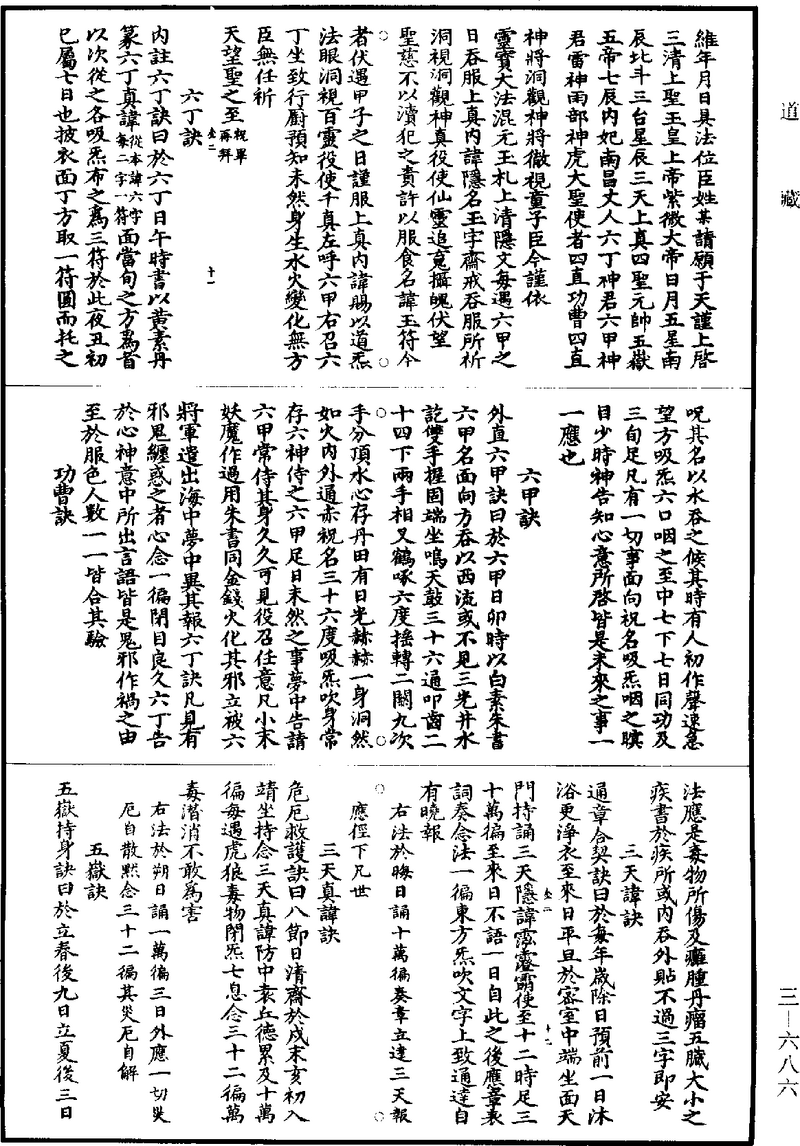 道藏
三—六八六
維年月日具法位臣姓某請願于天謹上啓
三清上聖玉皇上帝紫微大帝日月五星南
辰北斗三台星辰三天上真四聖元帥五嶽
五帝七辰内妃南昌丈人六丁神君六甲神
君雷神雨部神虎大聖使者四直功曹四直
神將洞觀神將徹視童子臣今謹依
靈寶大法混元玉札上清隱文每遇六甲之
日吞服上真内諱隱名玉字齋戒吞服所祈
洞視洞觀神真役使仙靈追䰟攝魄伏望
聖慈不以瀆犯之責許以服食名諱玉符今
者伏遇甲子之日謹服上真内諱賜以道炁
法眼洞視百靈役使千真左呼六甲右召六
丁坐致行厨預知未然身生水火變化無方
臣無任祈
天望聖之至祝畢再拜
六丁訣
内註六丁訣曰於六丁日午時書以黄素丹
篆六丁真諱從本諱六字每二字一符面當旬之方為首
以次從之各吸炁布之為三符於此夜丑初
已屬七日也披衣面丁方取一符圓而托之
呪其名以水吞之候其時有人初作聲速急
望方吸炁六口咽之至中七下七日同功及
三旬足凡有一切事面向祝名吸炁咽之瞑
目少時神告知心意所啓皆是未來之事一
一應也
六甲訣
外直六甲訣曰於六甲日卯時以白素朱書
六甲名面向方吞以西流或不見三光井水
訖雙手握固端坐鳴天鼓三十六通叩齒二
十四下兩手相叉鶴啄六度搖轉二關九次
手分頂水心存丹田有日光赫赫一身洞然
如火内外通赤祝名三十六度吸炁吹身常
存六神侍之六甲足日未然之事夢中告請
六甲常侍其身久久可見役召任意凡小末
妖魔作過用朱書同金錢火化其邪立被六
將軍遣出海中夢中異其報六丁訣凡見有
邪鬼纏惑之者心念一徧閉目良久六丁告
於心神意中所出言語皆是鬼邪作禍之由
至於服色人數一一皆合其驗
功曹訣
法應是毒物所傷及癰腫丹瘤五臟大小之
疾書於疾所或内吞外貼不過三字即安
三天諱訣
通章合契訣曰於每年歲除日預前一日沐
浴更淨衣至來日平旦於密室中端坐面天
門持誦三天隱諱使至十二時足三
十萬徧至來日不語一日自此之後應章表
詞奏念法一徧東方炁吹文字上致通達自
有曉報
右法於晦日誦十萬徧奏章立達三天報
應徑下凡世
三天真諱訣
危厄救護訣曰八節日清齋於戌末亥初入
靖坐持念三天真諱防中衰丘德累及十萬
徧每遇虎狼毒物閉炁七息念三十二徧萬
毒潛消不敢為害
右法於朔日誦一萬徧三日外應一切災
厄自散黙念三十二徧其災厄自解
五嶽訣
五嶽持身訣曰於立春後九日立夏後三日